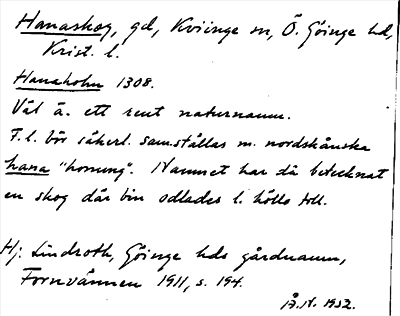 Hanaskog, gd, Kviinge sn, Ö. Göinge hd,
Krist. l.
Hanaholm 1308.
Väl ä. ett rent naturnamn.
F.l. bör säkerl. samställas m. nordskånska
hana "honung". Namnet har då betecknat
en skog där bin odlades l. hölls till.
Hj. Lindroth, Göinge hds gårdnamn,
Fornvännen 1911, s. 194.
1932.